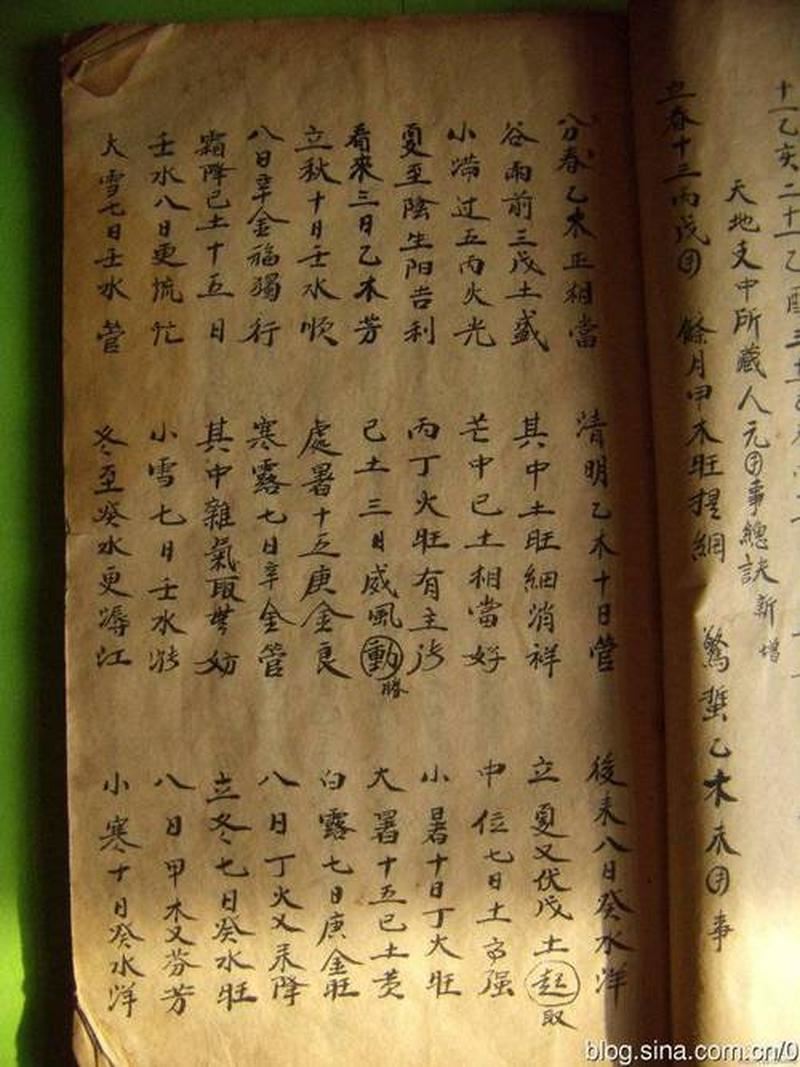 十一乙亥二十一乙酉三十
天地支中所藏人元用事總訣新增
立春十三丙戊用 餘月甲木旺提綱 驚蟄乙木未用事
分春乙木正相當 清明乙木十日管 後来八日癸水洋
谷雨前三戊土盛 其中土旺細消祥 立夏又伏戊土起取
小满过五丙火光 芒中已土相當好 中位七日土高强
夏至陰生阳吉利 丙丁火旺有主张 小暑十日丁火旺
看來三日乙木芳 己土三日威風動勝 大暑十五已土黄
立秋十日壬水順 處暑十五庚金良 白露七日庚金旺
八日辛金福獨行 寒露七日辛金管 八日丁火又来降
霜降已土十五日 其中雜氣取無妨 立冬七日癸水旺
壬水八日更慌忙 小雪七日壬水漲 八日甲木又芬芳
大雪七日壬水管 冬至癸水更潯江 小寒十日癸水洋
blog.sina.com.cn/0